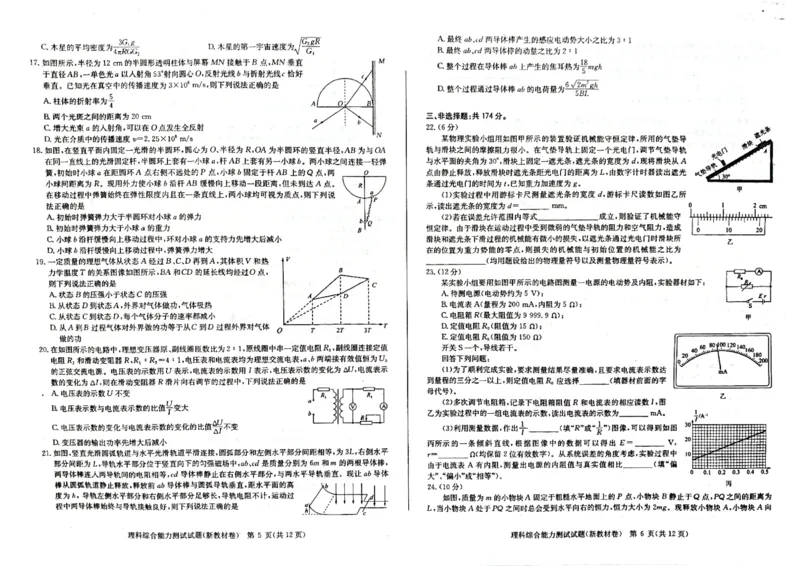 C.木星的平均密度为3G₁g/4πRGG₂ D.木星的第一宇宙速度为√(G₂gR/G₁)
17.如图所示,半径为12 cm的半圆形透明柱体与屏幕MN接触于B点,MN垂直
于直径AB,一单色光a以入射角53°射向圆心O,反射光线b与折射光线c恰好
垂直。已知光在真空中的传播速度为3×10⁸ m/s,则下列说法正确的是
A.柱体的折射率为5/4
B.两个光斑之间的距离为20 cm
C.增大光束a的入射角,可以在O点发生全反射
D.光在介质中的传播速度v=2.25×10⁸ m/s
18.如图,在竖直平面内固定一光滑的半圆环,圆心为O,半径为R,OA为半圆环的竖直半径,AB为与OA
在同一直线上的光滑固定杆,半圆环上套有一小球a,杆AB上套有另一小球b。两小球之间连接一轻弹
簧,初始时小球a在距圆环A点右侧不远处的P点,小球b固定于杆AB上的Q点,两
小球间距离为R。现用外力使小球b沿杆AB缓慢向上移动一段距离,但未到达A点。
在移动过程中弹簧始终在弹性限度内且在一条直线上,两小球均可视为质点,则下列说
法正确的是
A.初始时弹簧弹力大于半圆环对小球a的弹力
B.初始时弹簧弹力大于小球a的重力
C.小球b沿杆缓慢向上移动过程中,环对小球a的支持力先增大后减小
D.小球b沿杆缓慢向上移动过程中,弹簧弹力增大
19.一定质量的理想气体从状态A经过B、C、D再到A,其体积V和热
力学温度T的关系图像如图所示,BA和CD的延长线均经过O点,
则下列说法正确的是
A.状态B的压强小于状态C的压强
B.从状态D到状态A,外界对气体做功,气体吸热
C.从状态C到状态D,每个气体分子的速率都减小
D.从A到B过程气体对外界做的功等于从C到D过程外界对气体
做的功
V
A
B
C
D
O T 2T 3T T
20.在如图所示的电路中,理想变压器原、副线圈匝数比为2∶1,原线圈中串一定值电阻R₁,副线圈连接定值
电阻R₂和滑动变阻器R,R₁∶R₂=4∶1,电压表和电流表均为理想交流电表,a、b两端接有效值恒为U₀
的正弦交流电源。电压表的示数用U表示,电流表的示数用I表示,电压表示数的变化为ΔU,电流表示
数的变化为ΔI,则在滑动变阻器R滑片向右调节的过程中,下列说法正确的是
A.电压表的示数U不变
B.电压表示数与电流表示数的比值U/I变大
C.电压表示数的变化与电流表示数的变化的比值ΔU/ΔI不变
D.变压器的输出功率先增大后减小
21.如图,竖直光滑圆弧轨道与水平光滑轨道平滑连接,圆弧部分和左侧水平部分间距相等,为3L,右侧水平
部分间距为L,导轨水平部分位于竖直向下的匀强磁场中,ab、cd是质量分别为6m和m的两根导体棒,
两导体棒连入两导轨间的电阻相等,cd导体棒静止在右侧水平部分,与两水平导轨垂直。现让ab导体
棒从圆弧轨道静止释放,释放前ab导体棒与圆弧导轨垂直,距水平面的高
度为h,导轨左侧水平部分和右侧水平部分足够长,导轨电阻不计,运动过
程中两导体棒始终与导轨接触良好,则下列说法正确的是
理科综合能力测试试题(新教材卷) 第5页(共12页)
A.最终ab、cd两导体棒产生的感应电动势大小之比为3∶1
B.最终ab、cd两导体棒的动量之比为2∶1
C.整个过程在导体棒ab上产生的焦耳热为18/5mgh
D.整个过程通过导体棒ab的电荷量为6√(2m²gh)/5BL
三、非选择题:共174分。
22.(6分)
某物理实验小组用如图甲所示的装置验证机械能守恒定律,所用的气垫导
轨与滑块之间的摩擦阻力很小。在气垫导轨上固定一个光电门,调节气垫导轨
与水平面的夹角为30°,滑块上固定一遮光条,遮光条的宽度为d,现将滑块从A
点由静止释放,释放滑块时遮光条距光电门的距离为L,由数字计时器读出遮光
条通过光电门的时间为t,已知重力加速度为g。
遮光条
滑块
光电门
气垫导轨
A
30°
甲
(1)实验过程中用游标卡尺测量遮光条的宽度d,游标卡尺读数如图乙所
示,读出遮光条的宽度为d=______ mm。
(2)若在误差允许范围内等式____________成立,则验证了机械能守
恒定律。由于滑块在运动过程中受到微弱的气垫导轨的阻力和空气阻力,造成
滑块和遮光条下滑过程的机械能有微小的损失,以遮光条通过光电门时滑块所
在的位置为重力势能的零点,则损失的机械能与初始位置的机械能之比为
____________(均用题设给出的物理量符号以及测量物理量符号表示)。
0 1 2 cm
0 10 20
乙
23.(12分)
某实验小组要用如图甲所示的电路图测量一电源的电动势及内阻,实验器材如下:
A.待测电源(电动势约为5 V);
B.电流表A(量程为200 mA,内阻为5 Ω);
C.电阻箱R(最大阻值为9 999.9 Ω);
D.定值电阻R₁(阻值为15 Ω);
E.定值电阻R₂(阻值为150 Ω)
开关S一个,导线若干。
甲
回答下列问题:
(1)为了顺利完成实验,要求测量结果尽量准确,且要求电流表示数达
到量程的三分之一以上,则定值电阻R₀应选择______(填器材前面的字
母代号)。
(2)多次调节电阻箱,记录下电阻箱阻值R和电流表的相应读数I,图
乙为实验过程中的一组电流表的示数,读出电流表的示数为______ mA。
0 20 40 60 80 100 120 140 160 180 200
mA
乙
(3)利用测量数据,作出1/I-______(填“R”或“1/R”)图像,可以得到如图
丙所示的一条倾斜直线,根据图像中的数据可以得出E=______ V,
r=______ Ω(均保留2位有效数字)。从系统误差的角度考虑,实验过程中
由于电流表A有内阻,测量出电源的内阻值与真实值相比______(填“偏
大”、“偏小”或“相等”)。
1/I/A⁻¹
30
20
10
0 0.1 0.2 0.3 0.4 0.5
丙
24.(10分)
如图,质量为m的小物块A固定于粗糙水平地面上的P点,小物块B静止于Q点,PQ之间的距离为
L,当小物块A处于PQ之间时总会受到水平向右的恒力,恒力大小为2mg。现释放小物块A,小物块A向
理科综合能力测试试题(新教材卷) 第6页(共12页)